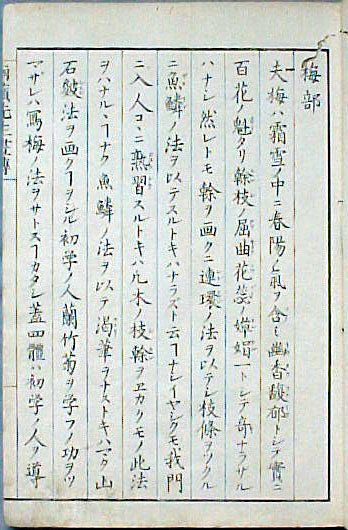 梅部
夫梅ハ霜雪ノ中ニ春陽ノ氣ヲ含ミ幽香馥郁トシテ實ニ
百花ノ魁タリ榦枝ノ屈曲花蕊ノ嬋娟一トシテ奇ナラサル
ハナシ然レトモ榦ヲ画クニ連環ノ法ヲ以テシ枝條ヲツクル
ニ魚鱗ノ法ヲ以テスルトキハナラズト云ヿナシイヤシクモ我門
ニ入人コヽニ熟習スルトキハ凡木ノ枝榦ヲヱカクモノ此法
ヲハナルヽヿナク魚鱗ノ法ヲ以テ渇筆ヲナストキハマタ山
石皴法ヲ画クヿヲシル初学ノ人蘭竹菊ヲ学フノ功ヲツ
マザレハ寫梅ノ法ヲサトスヿカタシ蓋四體ハ初学ノ人ヲ導